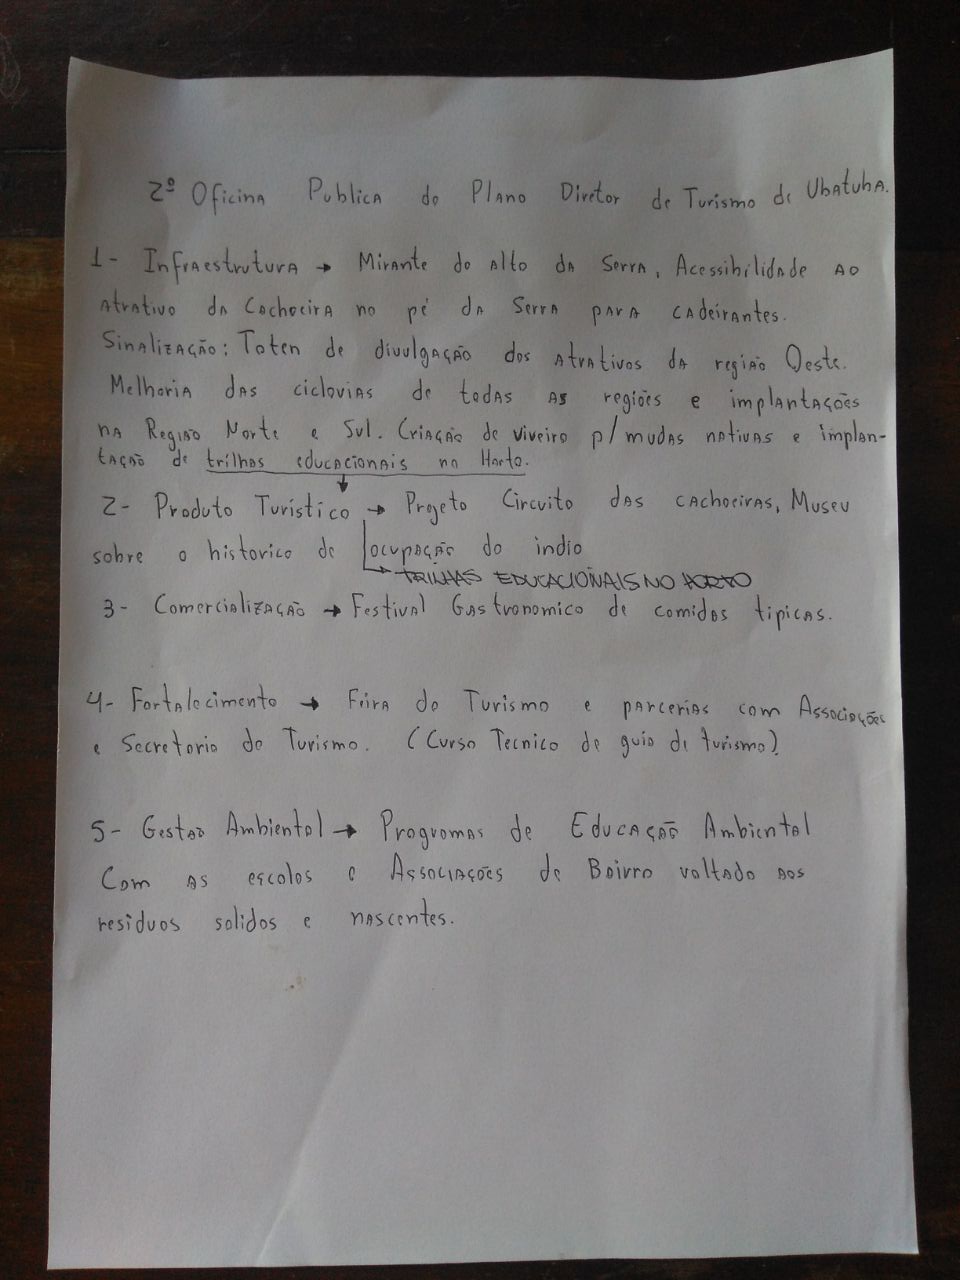 2º Oficina Publica do Plano Diretor de Turismo de Ubatuba.
1- Infraestrutura → Mirante do Alto da Serra, Acessibilidade ao
atrativo da Cachoeira no pé da Serra para cadeirantes.
Sinalização: Toten de divulgação dos atrativos da região Oeste.
Melhoria das ciclovias de todas as regiões e implantações
na Região Norte e Sul. Criação de viveiro p/ mudas nativas e implan-
tação de trilhas educacionais no Horto.
2- Produto Turístico → Projeto Circuito das cachoeiras, Museu
sobre o historico de ocupação do indio
→ TRILHAS EDUCACIONAIS NO HORTO
3- Comercialização → Festival Gastronomico de comidas tipicas.
4- Fortalecimento → Feira do Turismo e parcerias com Associações
e Secretaria do Turismo. (Curso Tecnico de guia de turismo)
5- Gestão Ambiental → Programas de Educação Ambiental
Com as escolas e Associações de Bairro voltado aos
residuos solidos e nascentes.